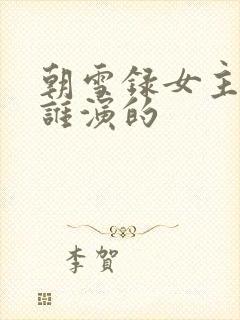 朝雪録女主
誰演的
李賀